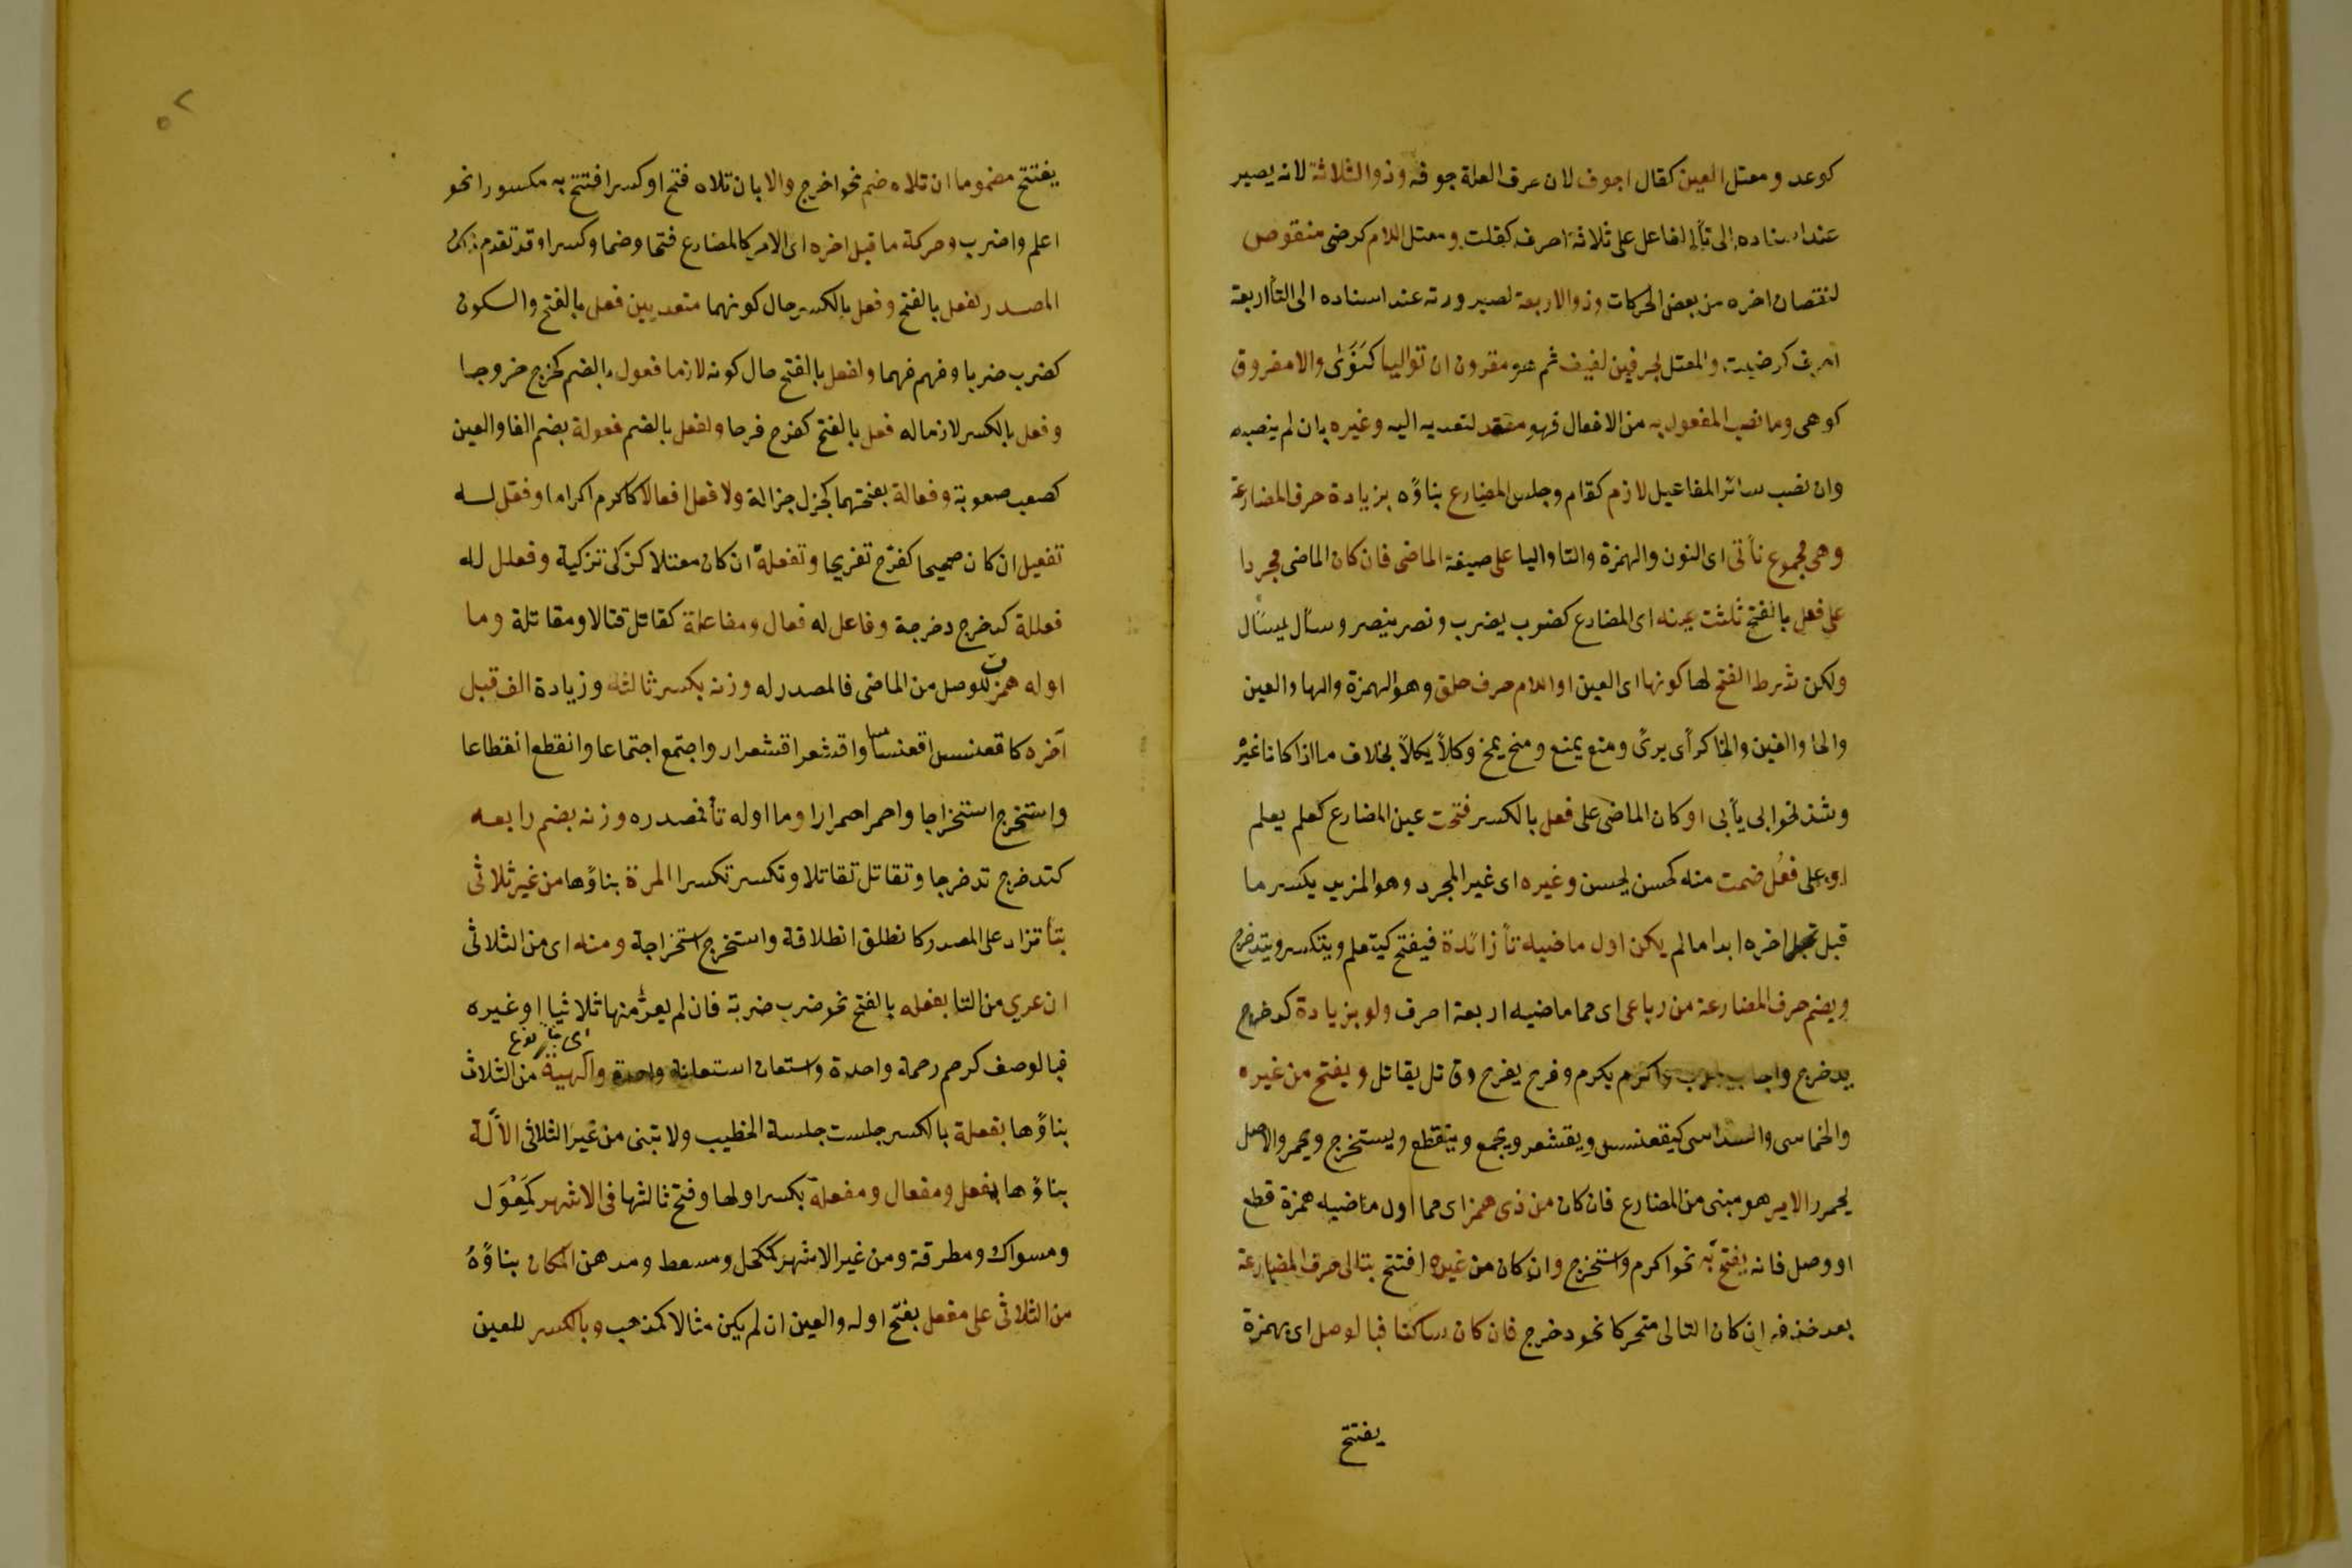 كوعد ومعتل العين كقال اجوف لان حرف العلة جوفه وذو الثلاثة لانه يصير
عند اسناده الى تأ الفاعل على ثلاثة احرف كقلت ومعتل اللام كرضى منقوص
لنقصان اخره من بعض الحركات وذو الاربعة لصيرورته عند اسناده الى التأ اربعة
احرف كرضيت والمعتل بحرفين لفيف ثم هو مقرون ان تواليا كنَوَىٰ والا مفروق
كوهى وما نصب المفعول به من الافعال فهو متعد لتعديه اليه وغيره بان لم ينصبه
وان نصب سائر المفاعيل لازم كقام وجلس المضارع بناؤه بزيادة حرف المضارعة
وهى مجموع نأتى اى النون والهمزة والتا واليا على صيغة الماضى فان كان الماضى مجردا
على فعل بالفتح ثلثت عينه اى المضارع كضرب يضرب ونصر ينصر وسأل يسأل
ولكن شرط الفتح لها كونها اى العين او اللام حرف حلق وهو الهمزة والها والعين
والحا والغين والخا كرأى يرىٰ ومنع يمنع ومنح يمنح وكلأ يكلأ بخلاف ما اذا كانا غيره
وشذ نحو ابى يأبى او كان الماضى على فعل بالكسر فتحت عين المضارع كعلم يعلم
او على فعُل ضمت منه كحسن يحسن وغيره اى غير المجرد وهو المزيد يكسر ما
قبل اخره ابدا ما لم يكن اول ماضيه تأ زائدة فيفتح كيتعلم ويتكسر ويتدحرج
ويضم حرف المضارعة من رباعى اى مما ماضيه اربعة احرف ولو بزيادة كدحرج
يدحرج واجاب يجيب واكرم يكرم وفرح يفرح وقاتل يقاتل ويفتح من غيره
والخماسى والسداسى كيقعنسس ويقشعر ويجمع وينقطع ويستخرج ويحمر والاصل
يحمرر الامر هو مبنى من المضارع فان كان من ذى همز اى مما اول ماضيه همزة قطع
او وصل فانه يفتح به نحو اكرم واستخرج وان كان من غيره افتتح بتالى حرف المضارعة
بعد حذفه ان كان التالى متحركا نحو دحرج فان كان ساكنا فبالوصل اى بهمزة
يفتتح
يفتتح مضموما ان تلاه ضم نحو اخرج والا بان تلاه فتح او كسر افتتح به مكسورا نحو
اعلم واضرب وحركة ما قبل اخره اى الامر كالمضارع فتحا وضما وكسرا وقد تقدم ذلك
المصدر لفعل بالفتح وفعل بالكسر حال كونهما متعديين فعل بالفتح والسكون
كضرب ضربا وفهم فهما ولفعل بالفتح حال كونه لازما فعول بالضم كخرج خروجا
وفعل بالكسر لازما له فعل بالفتح كفرح فرحا ولفعل بالضم فعولة بضم الفا والعين
كصعب صعوبة وفعالة بفتحهما كجزل جزالة ولافعل افعالا كاكرم اكراما وفعّل له
تفعيل ان كان صحيحا كفرّح تفريحا وتفعلة ان كان معتلا كزكى تزكية وفعلل له
فعللة كدحرج دحرجة وفاعل له فعال ومفاعلة كقاتل قتالا ومقاتلة وما
اوله همزة للوصل من الماضى فالمصدر له وزنه بكسر ثالثه وزيادة الف قبل
آخره كاقعنسس اقعنساسا واقشعر اقشعرار واجتمع اجتماعا وانقطع انقطاعا
واستخرج استخراجا واحمر احمرارا وما اوله تأ فمصدره وزنه بضم رابعه
كتدحرج تدحرجا وتقاتل تقاتلا وتكسر تكسرا المرة بناؤها من غير ثلاثى
بتأ تزاد على المصدر كانطلق انطلاقة واستخرج استخراجة ومنه اى من الثلاثى
ان عري من التا بفعله بالفتح نحو ضرب ضربة فان لم يعرّ منها ثلاثيا او غيره
اى
فبالوصف كرحم رحمة واحدة واستعان استعانة واحدة والهيئة من الثلاث
بناؤها بفعلة بالكسر جلست جلسة الخطيب ولا تبنى من غير الثلاثى الآلة
بناؤها بمفعل ومفعال ومفعلة بكسر اولها وفتح ثالثها فى الاشهر كمِغْوَل
ومسواك ومطرقة ومن غير الاشهر كمكحل ومسعط ومدهن المكان بناؤهُ
من الثلاثى على مفعل بفتح اوله والعين ان لم يكن مثالا كمذهب وبالكسر للعين